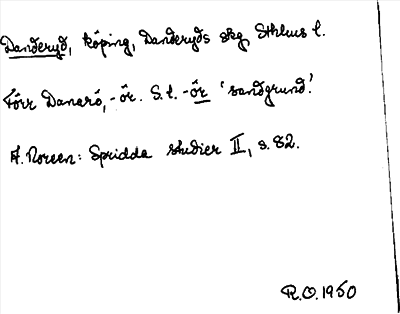 Danderyd, köping, Danderyds skg, Sthlms l.
Förr Danarö, -ör. S. l. -ör 'sandgrund'.
A. Noreen: Spridda studier II, s. 82.
R.O. 1950